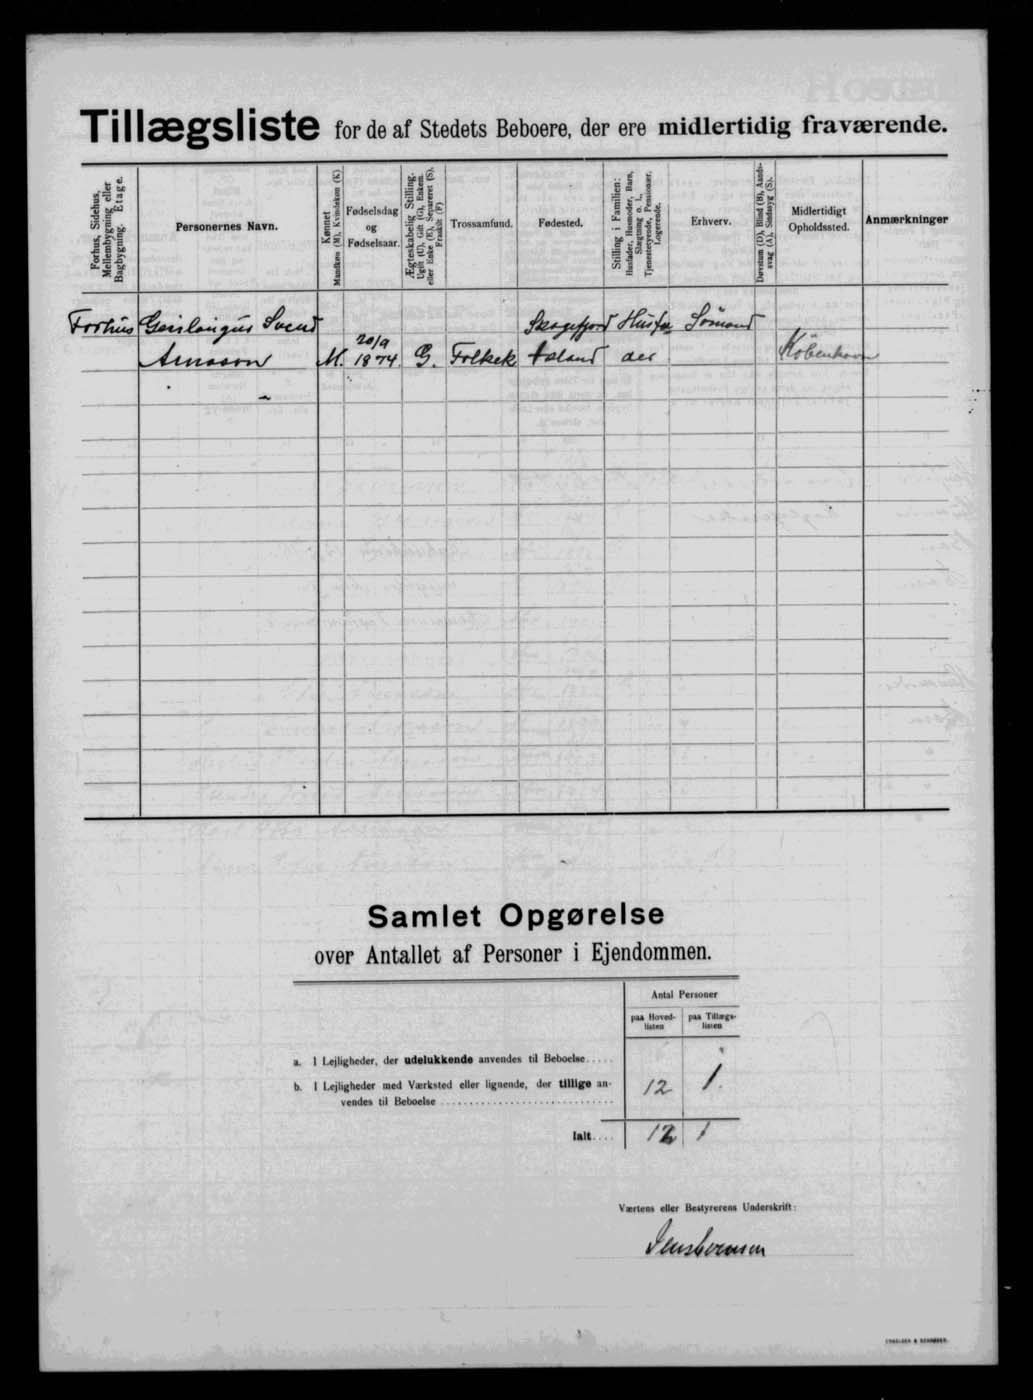 Tillægsliste for de af Stedets Beboere, der ere midlertidig fraværende.
Forhus, Sidehus,
Mellembygning eller
Bagbygning. Etage.
Personernes Navn.
Kønnet
Mandkøn (M), Kvindekøn (K)
Fødselsdag
og
Fødselsaar.
Ægteskabelig Stilling.
Ugift (U), Gift (G), Enkem.
eller Enke (E), Separeret (S),
Fraskilt (F)
Trossamfund.
Fødested.
Stilling i Familien:
Husfader, Husmoder, Barn,
Slægtning o. l.,
Tjenestetyende, Pensionær,
Logerende.
Erhverv.
Døvstum (D), Blind (B), Aands-
svag (A), Sindssyg (S).
Midlertidigt
Opholdssted.
Anmærkninger
Forhus Svend Skagefjord Husfa Sømand
20/9
Arnason M. 1874 G. Folkek Island der København
Samlet Opgørelse
over Antallet af Personer i Ejendommen.
Antal Personer
paa Hoved-
listen
paa Tillægs-
listen
a. I Lejligheder, der udelukkende anvendes til Beboelse.....
b. I Lejligheder med Værksted eller lignende, der tillige an-
vendes til Beboelse
12 1
Ialt.... 12 1
Værtens eller Bestyrerens Underskrift: